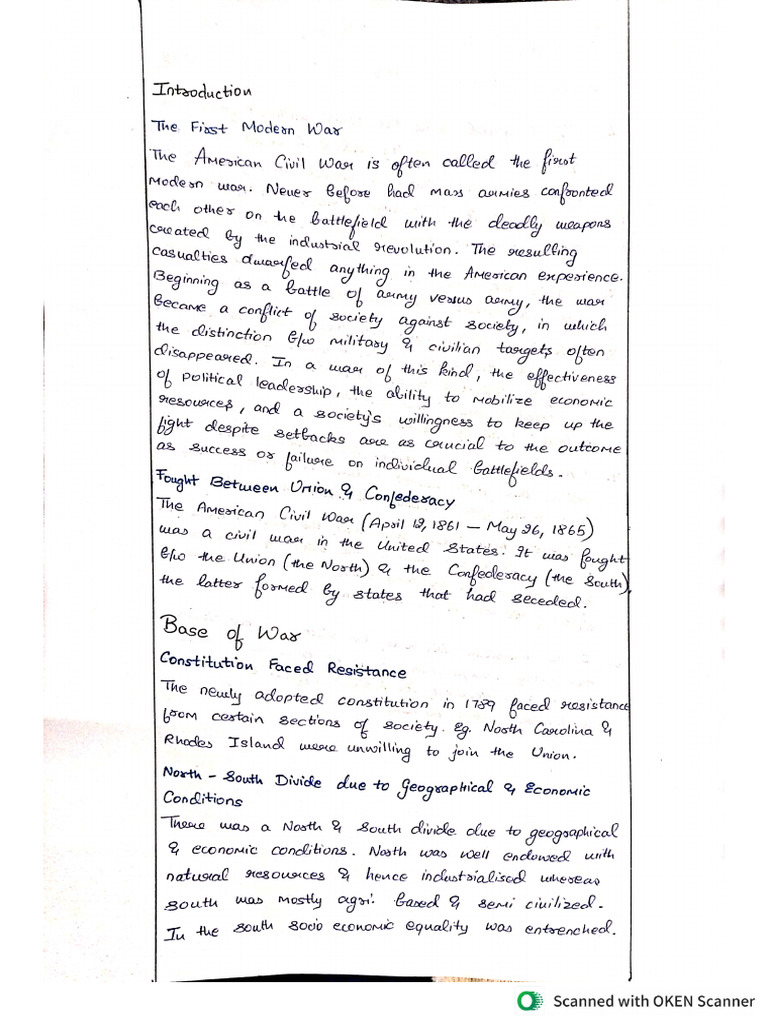 Introduction
The First Modern War
The American Civil War is often called the first
modern war. Never before had mass armies confronted
each other on the battlefield with the deadly weapons
created by the industrial revolution. The resulting
casualties dwarfed anything in the American experience.
Beginning as a battle of army versus army, the war
became a conflict of society against society, in which
the distinction b/w military & civilian targets often
disappeared. In a war of this kind, the effectiveness
of political leadership, the ability to mobilize economic
resources, and a society's willingness to keep up the
fight despite setbacks are as crucial to the outcome
as success or failure on individual battlefields.
Fought Between Union & Confederacy
The American Civil War (April 12, 1861 – May 26, 1865)
was a civil war in the United States. It was fought
b/w the Union (the North) & the Confederacy (the South),
the latter formed by states that had seceded.
Base of War
Constitution Faced Resistance
The newly adopted constitution in 1789 faced resistance
from certain sections of society. Eg. North Carolina &
Rhodes Island were unwilling to join the Union.
North – South Divide due to Geographical & Economic
Conditions
There was a North & South divide due to geographical
& economic conditions. North was well endowed with
natural resources & hence industrialised whereas
south was mostly agri. based & semi civilized.
In the south socio economic equality was entrenched.
Scanned with OKEN Scanner